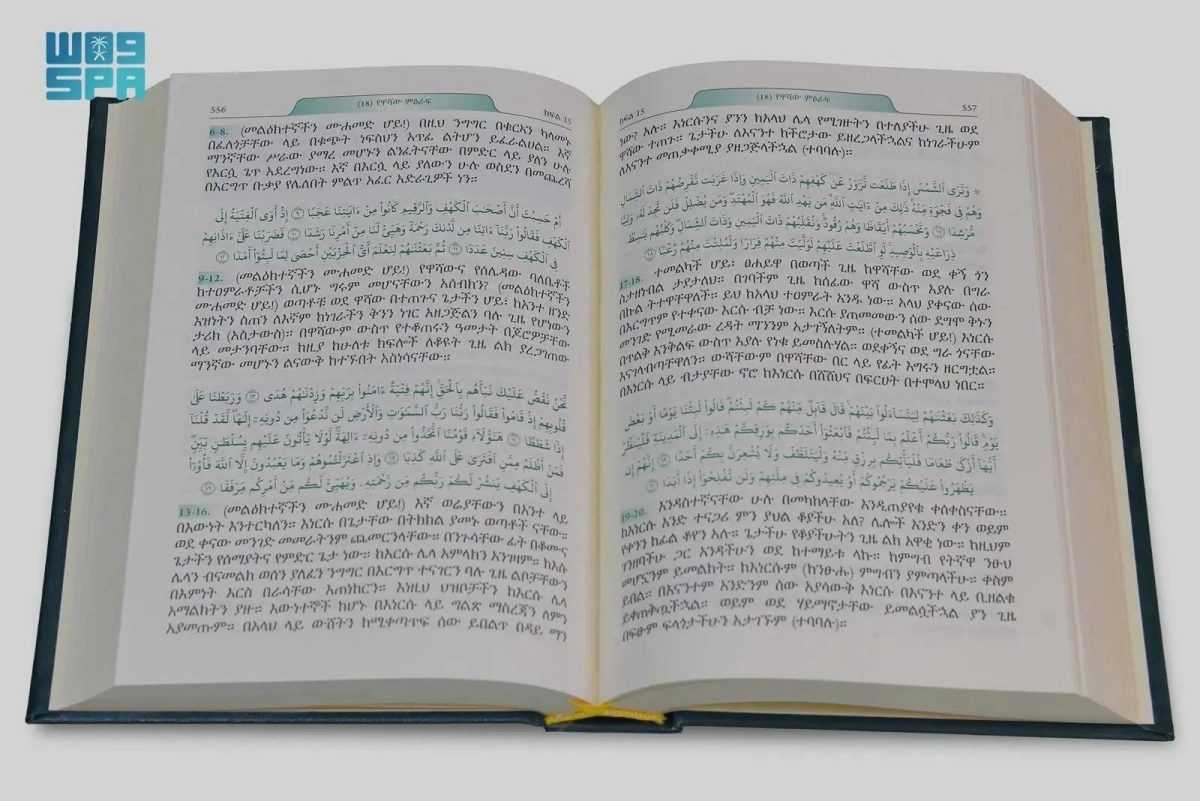 واس
SPA
556
(18) የዋሻው ምዕራፍ
ክፍል 15
6-8. (መልዕክተኛችን ሙሐመድ ሆይ!) በዚህ ንግግር በቁርአን ካላመኑ
በፈለጎቻቸው ላይ በቁጭት ነፍስህን አጥፊ ልትሆን ይፈራልሀል። እኛ
ማንኛቸው ሥራው ያማረ መሆኑን ልንፈትናቸው በምድር ላይ ያለን ሁሉ
የእርሷ ጌጥ አደረግነው። እኛ በእርሷ ላይ ያለውን ሁሉ ወስደን በመጨረሻ
በእርግጥ ቡቃያ የሌለበት ምልጥ አፈር አድራጊዎች ነን።
أَمْ حَسِبْتَ أَنَّ أَصْحَٰبَ ٱلْكَهْفِ وَٱلرَّقِيمِ كَانُوا۟ مِنْ ءَايَٰتِنَا عَجَبًا ۝٩ إِذْ أَوَى ٱلْفِتْيَةُ إِلَى
ٱلْكَهْفِ فَقَالُوا۟ رَبَّنَآ ءَاتِنَا مِن لَّدُنكَ رَحْمَةً وَهَيِّئْ لَنَا مِنْ أَمْرِنَا رَشَدًا ۝١٠ فَضَرَبْنَا عَلَىٰٓ ءَاذَانِهِمْ
فِى ٱلْكَهْفِ سِنِينَ عَدَدًا ۝١١ ثُمَّ بَعَثْنَٰهُمْ لِنَعْلَمَ أَىُّ ٱلْحِزْبَيْنِ أَحْصَىٰ لِمَا لَبِثُوٓا۟ أَمَدًا ۝١٢
9-12. (መልዕክተኛችን ሙሐመድ ሆይ!) የዋሻውና የሰሌዳው ባለቤቶች
ከተዐምራቶቻችን ሲሆኑ ግሩም መሆናቸውን አሰብክን? (መልዕክተኛችን
ሙሐመድ ሆይ!) ወጣቶቹ ወደ ዋሻው በተጠጉና ጌታችን ሆይ፡ ከአንተ ዘንድ
እዝነትን ስጠን ለእኛም ከነገራችን ቅንን ነገር አዘጋጅልን ባሉ ጊዜ የሆነውን
ታሪክ (አስታውስ)። በዋሻውም ውስጥ የተቆጠሩን ዓመታት በጆሮዎቻቸው
ላይ መታንባቸው። ከዚያ ከሁለቱ ክፍሎች ለቆዩት ጊዜ ልክ ያረጋገጠው
ማንኛው መሆኑን ልናውቅ ከተኙበት አስነሳናቸው።
نَّحْنُ نَقُصُّ عَلَيْكَ نَبَأَهُم بِٱلْحَقِّ إِنَّهُمْ فِتْيَةٌ ءَامَنُوا۟ بِرَبِّهِمْ وَزِدْنَٰهُمْ هُدًى ۝١٣ وَرَبَطْنَا عَلَىٰ
قُلُوبِهِمْ إِذْ قَامُوا۟ فَقَالُوا۟ رَبُّنَا رَبُّ ٱلسَّمَٰوَٰتِ وَٱلْأَرْضِ لَن نَّدْعُوَا۟ مِن دُونِهِۦٓ إِلَٰهًا لَّقَدْ قُلْنَآ
إِذًا شَطَطًا ۝١٤ هَٰٓؤُلَآءِ قَوْمُنَا ٱتَّخَذُوا۟ مِن دُونِهِۦٓ ءَالِهَةً لَّوْلَا يَأْتُونَ عَلَيْهِم بِسُلْطَٰنٍۭ بَيِّنٍ
فَمَنْ أَظْلَمُ مِمَّنِ ٱفْتَرَىٰ عَلَى ٱللَّهِ كَذِبًا ۝١٥ وَإِذِ ٱعْتَزَلْتُمُوهُمْ وَمَا يَعْبُدُونَ إِلَّا ٱللَّهَ فَأْوُۥٓا۟
إِلَى ٱلْكَهْفِ يَنشُرْ لَكُمْ رَبُّكُم مِّن رَّحْمَتِهِۦ وَيُهَيِّئْ لَكُم مِّنْ أَمْرِكُم مِّرْفَقًا ۝١٦
13-16. (መልዕክተኛችን ሙሐመድ ሆይ!) እኛ ወሬያቸውን በአንተ ላይ
በእውነት እንተርካለን። እነርሱ በጌታቸው በትክክል ያመኑ ወጣቶች ናቸው።
ወደ ቀናው መንገድ መመራትንም ጨመርንላቸው። በንጉሳቸው ፊት በቆሙና
ጌታችን የሰማያትና የምድር ጌታ ነው። ከእርሱ ሌላ አምላክን አንገዛም። ከእሱ
ሌላን ብናመልክ ወሰን ያለፈን ንግግር በእርግጥ ተናገርን ባሉ ጊዜ ልቦቻቸውን
በእምነት እርስ በራሳቸው አጠነከርን። እነዚህ ህዝቦቻችን ከእርሱ ሌላ
አማልክትን ያዙ። እውነተኞች ከሆኑ በእነርሱ ላይ ግልጽ ማስረጃን ለምን
አያመጡም። በአላህ ላይ ውሸትን ከሚቀጣጥፍ ሰው ይበልጥ በዳይ ማን
ክፍል 15
(18) የዋሻው ምዕራፍ
557
ነው? አሉ። እነርሱንና ያንን ከአላህ ሌላ የሚገዙትን በተለያችሁ ጊዜ ወደ
ዋሻው ተጠጉ። ጌታችሁ ለእናንተ ከችሮታው ይዘረጋላችኋልና ከነገራችሁም
ለእናንተ መጠቃቀሚያ ያዘጋጅላችኋል (ተባባሉ)።
۞ وَتَرَى ٱلشَّمْسَ إِذَا طَلَعَت تَّزَٰوَرُ عَن كَهْفِهِمْ ذَاتَ ٱلْيَمِينِ وَإِذَا غَرَبَت تَّقْرِضُهُمْ ذَاتَ ٱلشِّمَالِ
وَهُمْ فِى فَجْوَةٍ مِّنْهُ ذَٰلِكَ مِنْ ءَايَٰتِ ٱللَّهِ مَن يَهْدِ ٱللَّهُ فَهُوَ ٱلْمُهْتَدِ وَمَن يُضْلِلْ فَلَن تَجِدَ لَهُۥ وَلِيًّا
مُّرْشِدًا ۝١٧ وَتَحْسَبُهُمْ أَيْقَاظًا وَهُمْ رُقُودٌ وَنُقَلِّبُهُمْ ذَاتَ ٱلْيَمِينِ وَذَاتَ ٱلشِّمَالِ وَكَلْبُهُم بَٰسِطٌ
ذِرَاعَيْهِ بِٱلْوَصِيدِ لَوِ ٱطَّلَعْتَ عَلَيْهِمْ لَوَلَّيْتَ مِنْهُمْ فِرَارًا وَلَمُلِئْتَ مِنْهُمْ رُعْبًا ۝١٨
17-18. ተመልካች ሆይ፡ ፀሐይዋ በወጣች ጊዜ ከዋሻቸው ወደ ቀኝ ጎን
ስታዘነብል ታያታለህ። በገባችም ጊዜ ከሰፊው ዋሻ ውስጥ እያሉ በግራ
በኩል ትተዋቸዋለች። ይህ ከአላህ ተዐምራት አንዱ ነው። አላህ ያቀናው ሰው
በእርግጥም የተቀናው እርሱ ብቻ ነው። እርሱ ያጠመመውን ሰው ደግሞ ቅኑን
መንገድ የሚመራው ረዳት ማንንም አታገኝለትም። (ተመልካች ሆይ!) እነርሱ
በጥልቅ እንቅልፍ ውስጥ እያሉ የነቁ ይመስሉሃል። ወደቀኝና ወደ ግራ ጎናቸው
እናገላብጣቸዋለን። ውሻቸውም በዋሻቸው በር ላይ የፊት እግሩን ዘርግቷል።
በእነርሱ ላይ ብታያቸው ኖሮ ከእነርሱ በሸሸህና በፍርሀት በተሞላህ ነበር።
وَكَذَٰلِكَ بَعَثْنَٰهُمْ لِيَتَسَآءَلُوا۟ بَيْنَهُمْ قَالَ قَآئِلٌ مِّنْهُمْ كَمْ لَبِثْتُمْ قَالُوا۟ لَبِثْنَا يَوْمًا أَوْ بَعْضَ
يَوْمٍ قَالُوا۟ رَبُّكُمْ أَعْلَمُ بِمَا لَبِثْتُمْ فَٱبْعَثُوٓا۟ أَحَدَكُم بِوَرِقِكُمْ هَٰذِهِۦٓ إِلَى ٱلْمَدِينَةِ فَلْيَنظُرْ
أَيُّهَآ أَزْكَىٰ طَعَامًا فَلْيَأْتِكُم بِرِزْقٍ مِّنْهُ وَلْيَتَلَطَّفْ وَلَا يُشْعِرَنَّ بِكُمْ أَحَدًا ۝١٩ إِنَّهُمْ إِن
يَظْهَرُوا۟ عَلَيْكُمْ يَرْجُمُوكُمْ أَوْ يُعِيدُوكُمْ فِى مِلَّتِهِمْ وَلَن تُفْلِحُوٓا۟ إِذًا أَبَدًا ۝٢٠
19-20. እንዳስተኛናቸው ሁሉ በመካከላቸው እንዲጠያየቁ ቀሰቀስናቸው።
ከእነርሱ አንድ ተናጋሪ ምን ያህል ቆያችሁ አለ? ሌሎች አንድን ቀን ወይም
የቀንን ከፊል ቆየን አሉ። ጌታችሁ የቆያችሁትን ጊዜ ልክ አዋቂ ነው። ከዚህም
ገንዘባችሁ ጋር አንዳችሁን ወደ ከተማይቱ ላኩ። ከምግብ የትኛዋ ንፁህ
መሆኗንም ይመልከት። ከእነርሱም (ከንፁሑ) ምግብን ያምጣላችሁ። ቀስም
ይበል። በእናንተም አንድንም ሰው አያሳውቅ እነርሱ በእናንተ ላይ ቢዘልቁ
ይቀጠቅጧችኋል። ወይም ወደ ሃይማኖታቸው ይመልሷችኋል ያን ጊዜ
በፍፁም ፍላጎታችሁን አታገኙም (ተባባሉ)።